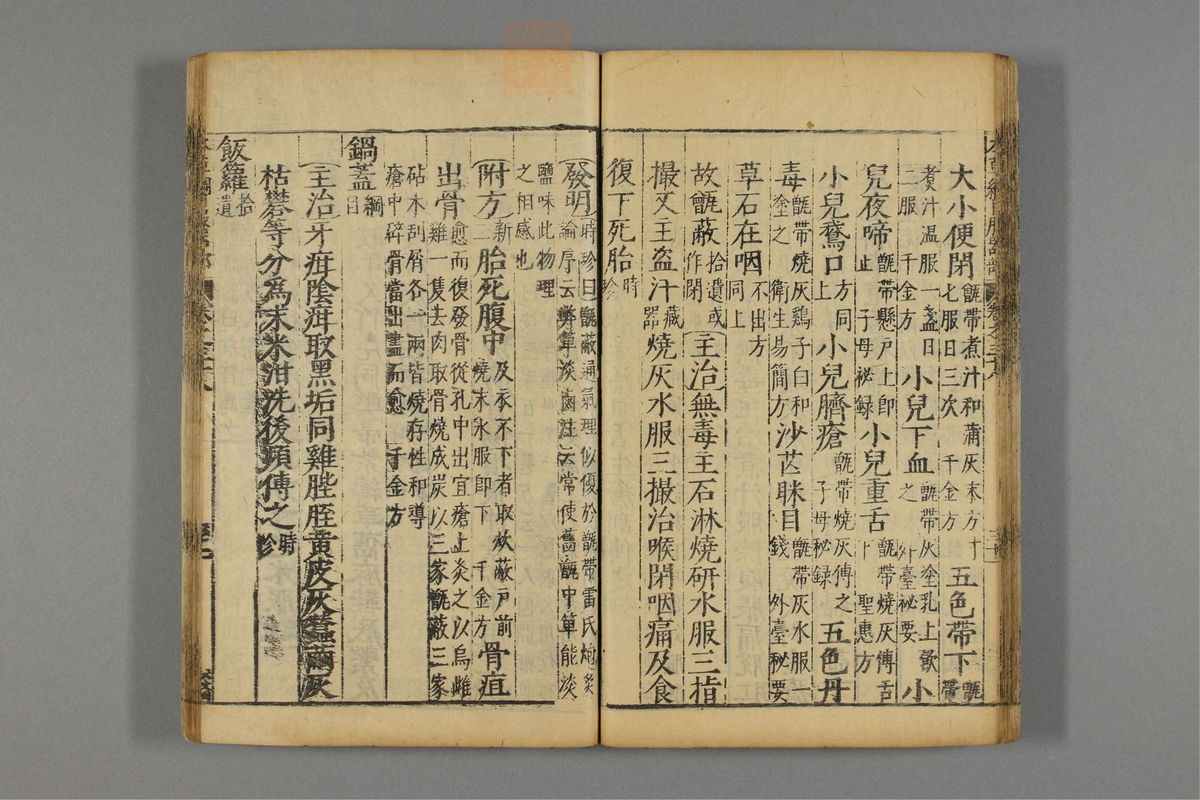 大小便閉甑帶煮汁和蒲灰末方寸七服日三次千金方五色帶下甑帶
煮汁温服一盞日二服千金方小兒下血甑帶灰塗乳上飲之外臺祕要小
兒夜啼甑帶懸戶上即止子母祕録小兒重舌甑帶燒灰傅舌下聖惠方
小兒鵞口方同上小兒臍瘡甑帶燒灰傅之子母祕録五色丹
毒甑帶燒灰鷄子白和塗之衛生易簡方沙芒眯目甑帶灰水服一錢外臺祕要
草石在咽不出方同上
故甑蔽拾遺或作閉主治無毒主石淋燒研水服三指
撮又主盜汗藏器燒灰水服三撮治喉閉咽痛及食
復下死胎時珍
發明時珍曰甑蔽通氣理似優於甑帶雷氏炮炙論序云弊箄淡鹵註云常使舊甑中箄能淡
鹽味此物理之相感也
附方新二胎死腹中及衣不下者取炊蔽戶前燒末水服即下千金方骨疽
出骨愈而復發骨從孔中出宜瘡上灸之以烏雌雞一隻去肉取骨燒成炭以三家甑蔽三家
砧木刮屑各一兩皆燒存性和導瘡中碎骨當出盡而愈千金方
鍋蓋綱目
主治牙疳陰疳取黑垢同雞䏶胵黃皮灰蠶繭灰
枯礬等分為末米泔洗後頻傅之時珍
飯籮拾遺